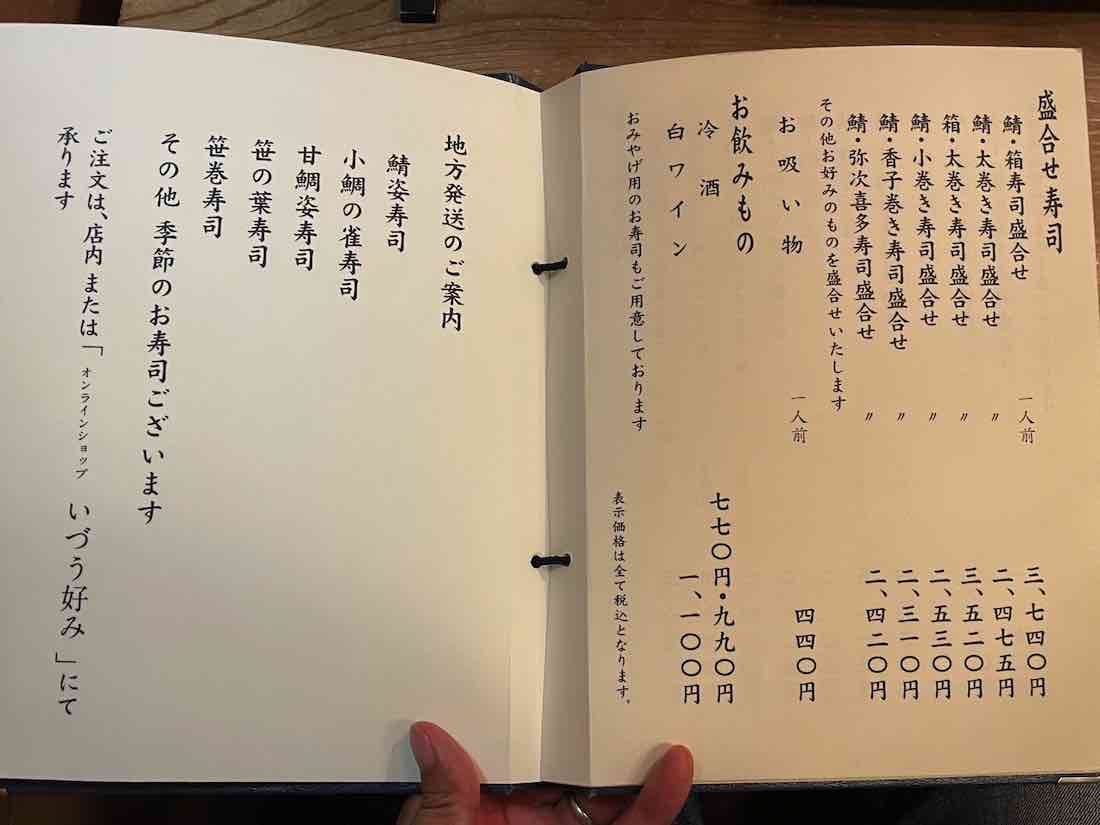 盛合せ寿司
鯖・箱寿司盛合せ 一人前 三、七四〇円
鯖・太巻き寿司盛合せ 〃 二、四七五円
箱・太巻き寿司盛合せ 〃 三、五二〇円
鯖・小巻き寿司盛合せ 〃 二、五三〇円
鯖・香子巻き寿司盛合せ 〃 二、三一〇円
鯖・弥次喜多寿司盛合せ 〃 二、四二〇円
その他お好みのものを盛合せいたします
お吸い物 一人前 四四〇円
お飲みもの
冷酒 七七〇円・九九〇円
白ワイン 一、一〇〇円
おみやげ用のお寿司もご用意しております
表示価格は全て税込となります。
地方発送のご案内
鯖姿寿司
小鯛の雀寿司
甘鯛姿寿司
笹の葉寿司
笹巻寿司
その他 季節のお寿司ございます
ご注文は、店内 または「オンラインショップ いづう好み」にて
承ります